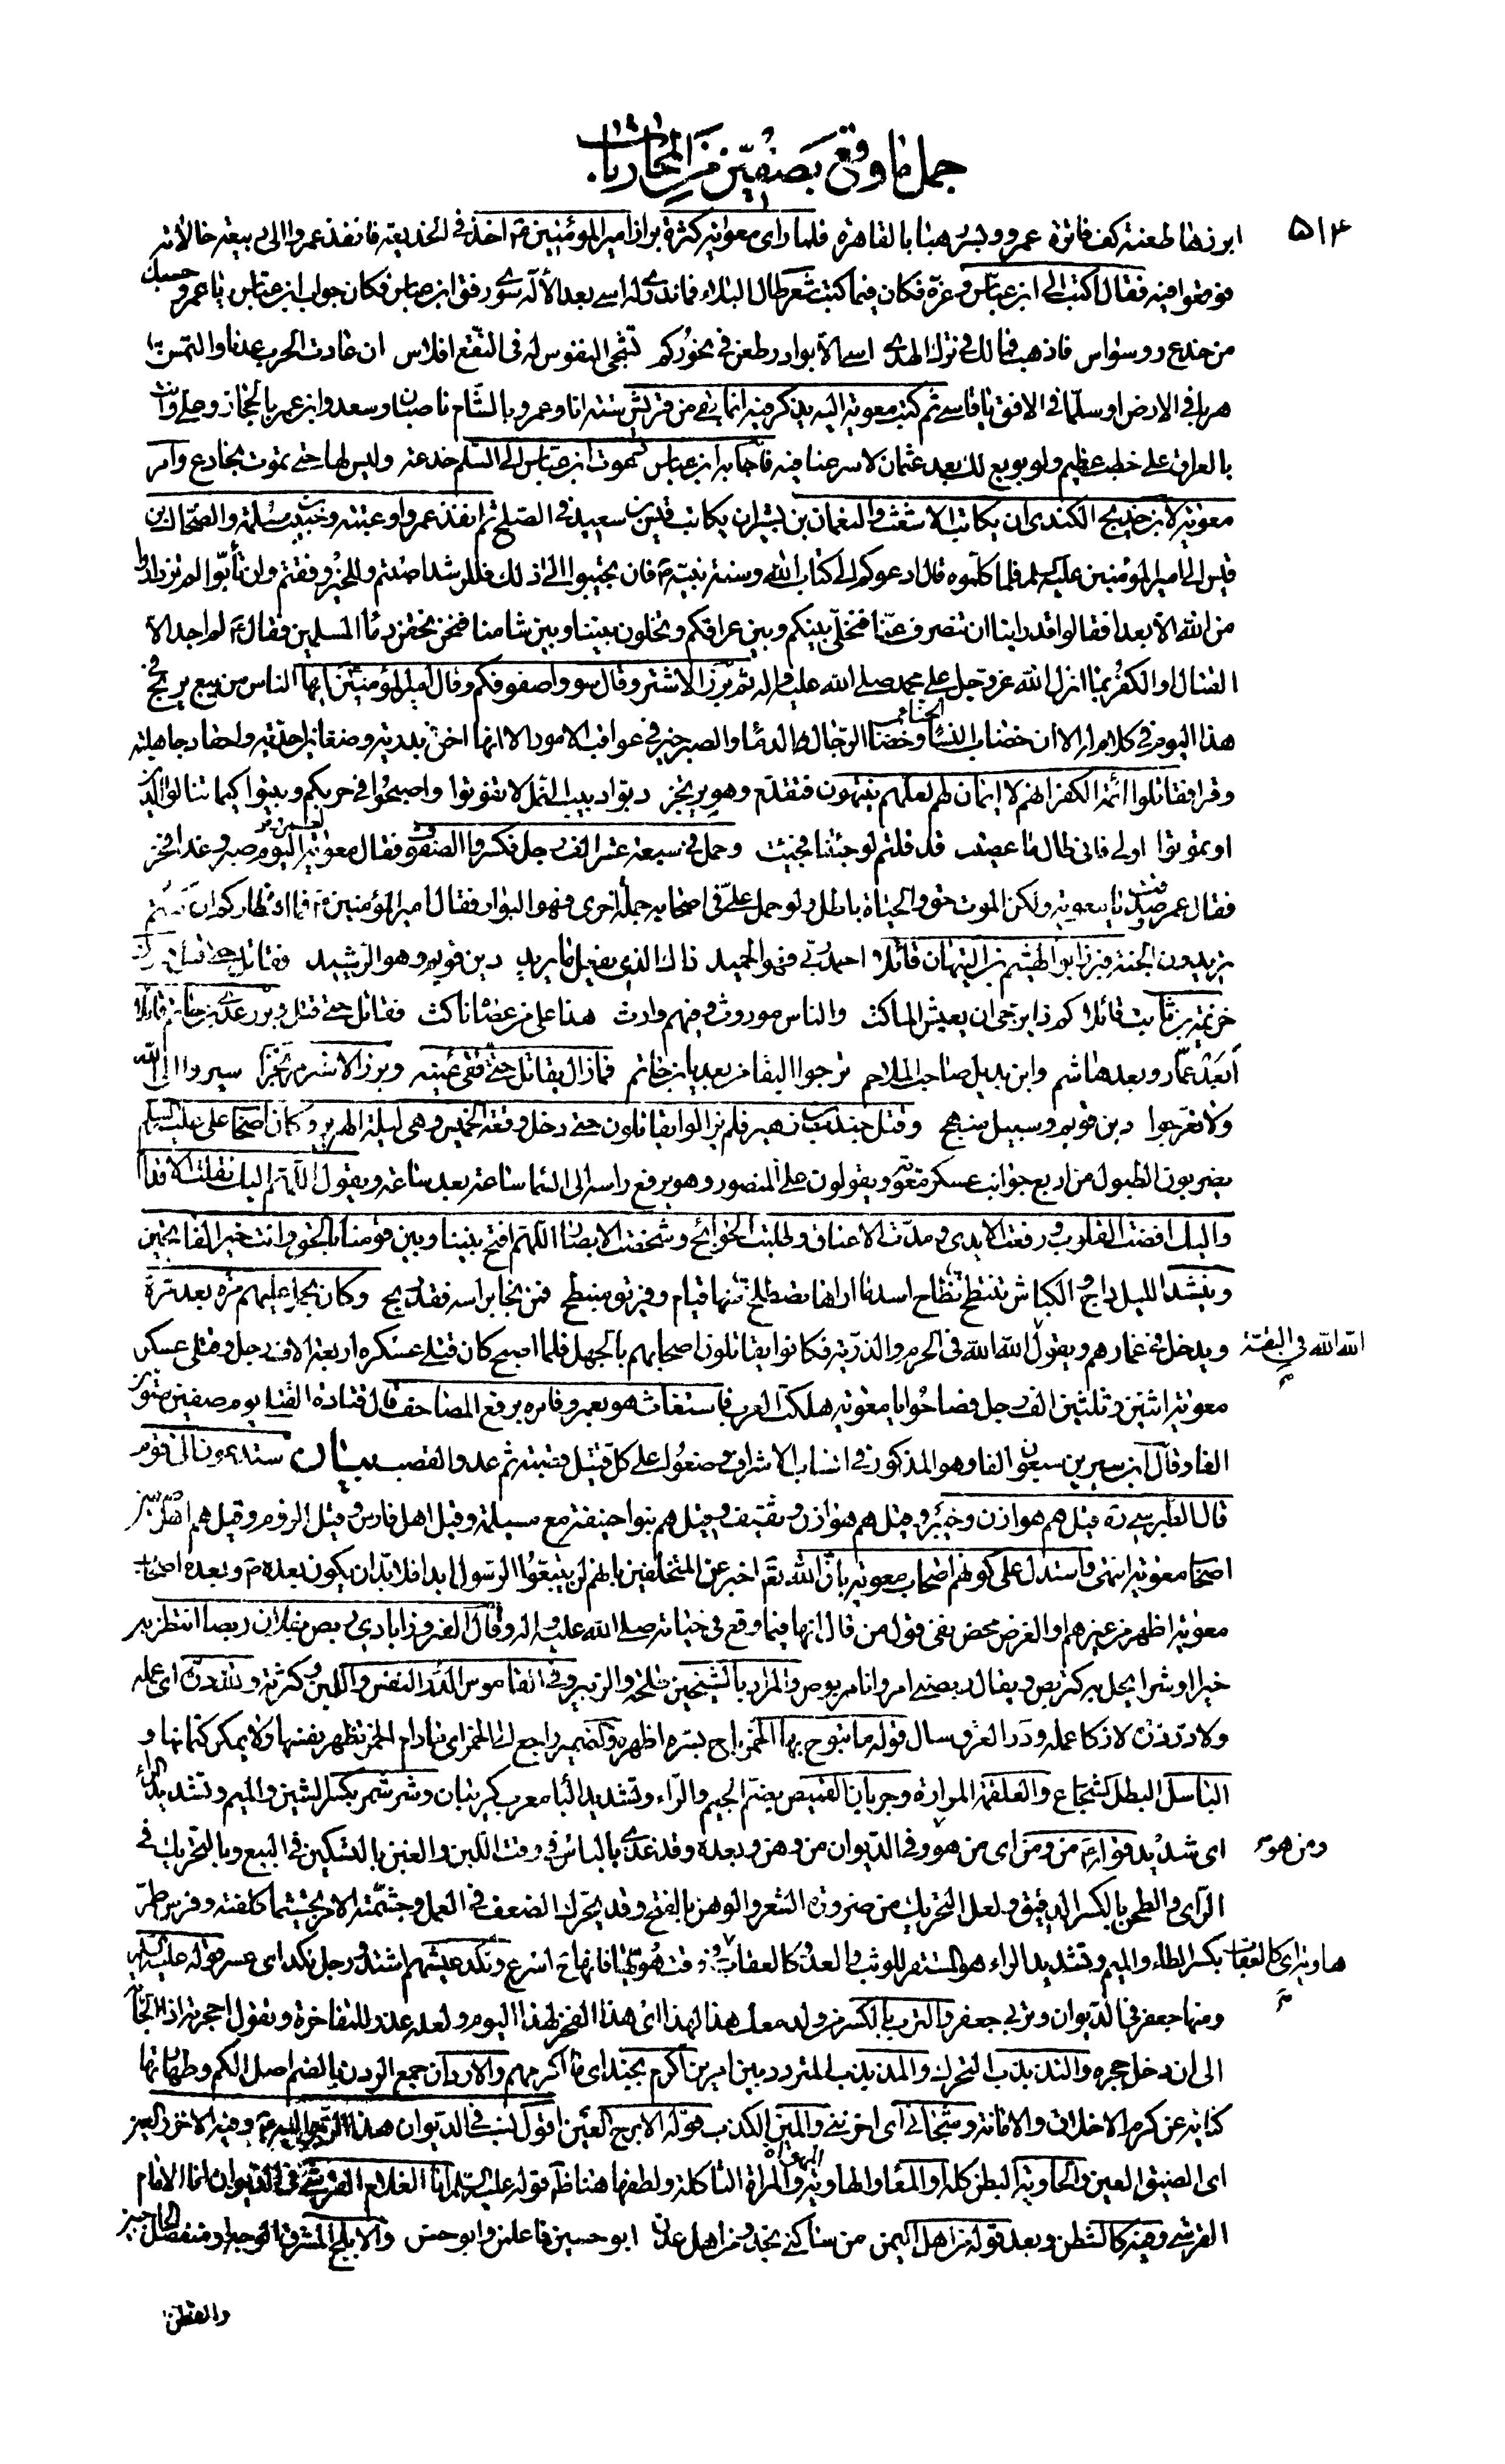 جمل ما وقع بصفين من المحاربات
٥١٤
ابرزها لطعنة كف فاترة عمرو وبسر رهبا بالقاهرة فلما رأى معاوية كثرة براز امير المؤمنين ع اخذ في الخديعة فانفذ عمروا الى ربيعة خالاته
فوقعوا فيه فقال اكتب الى ابن عباس وغره فكان فيما كتب شعر طال البلاء فما ندرى له اسى بعد الاله سوى رفق ابن عباس فكان جواب ابن عباس يا عمرو حسبك
من خدع ووسواس فاذهب فما لك في ترك الهدى اسى الا بوادر طعن في نحوركم تشجى النفوس له في النقع افلاس ان عادت الحرب عدنا والتمس
هربا في الارض او سلما في الافق يا قاسى ثم كتب معوية اليه يذكر فيه انما بقى من قريش ستة انا وعمرو بالشام ناصبان وسعد وابن عمر بالحجاز وعلى وانت
بالعراق على خطب عظيم ولو بويع لك بعد عثمان لاسرعنا فيه فاجابه ابن عباس دعوت ابن عباس الى السلم خدعة وليس لها حتى تموت بخادع وامر
معوية لابن خديج الكندى ان يكاتب الاشعث والنعمان بن بشير ان يكاتب قيس بن سعيد في الصلح ثم انفذ عمروا وعتبة وحبيب بن مسلمة والضحاك بن
قيس الى امير المؤمنين عليه السلم فلما كلموه قال ادعوكم الى كتاب الله وسنة نبيه ص فان تجيبوا الى ذلك فللرشد اصبتم وللخير وفقتم وان تأبوا لم تزدادوا
من الله الا بعدا فقالوا قد راينا ان تنصرف عنا فنخلى بينكم وبين عراقكم وتخلون بيننا وبين شامنا فنحن نحقن دماء المسلمين فقال ع لم اجد الا
القتال او الكفر بما انزل الله عز وجل على محمد صلى الله عليه واله ثم برز الاشتر وقال سووا صفوفكم وقال امير المؤمنين ايها الناس من يبع يربح في
هذا اليوم في كلام له الا ان خضاب النساء الحناء وخضاب الرجال الدماء والصبر خير في عواقب الامور الا انها احن بدرية وضغاين احدية واحقاد جاهلية
وقرأ فقاتلوا ائمة الكفر انهم لا ايمان لهم لعلهم ينتهون فتقدم وهو يرتجز دبوا دبيب النمل لا تفوتوا واصبحوا في حربكم وبيتوا كيما تنالوا الدين
او تموتوا اولى فانى طال ما عصيت قد قلتم لو جئتنا فجئت وحمل في سبعة عشر الف رجل فكسروا الصفوف فقال معوية لعمرو اليوم صبر وغدا فخر
فقال عمرو صدقت يا معوية ولكن الموت حق والحياة باطل ولو حمل على في اصحابه حملة اخرى فهو البوار فقال امير المؤمنين ع فما انتظاركم ان كنتم
تريدون الجنة فبرز ابو الهيثم بن التيهان قائلا احمد ربى فهو الحميد ذاك الذى يفعل ما يريد دين قويم وهو الرشيد فقاتل حتى قتل وبرز
خزيمة بن ثابت قائلا كم ذا يرجى ان يعيش الماكث والناس موروث ومنهم وارث هذا على من عصاه ناكث فقاتل حتى قتل وبرز عدى بن حاتم قائلا
ابعد عمار وبعد هاشم وابن بديل صاحب الملاحم ترجوا البقاء من بعد يا ابن حاتم فما زال يقاتل حتى فقئ عينه وبرز الاشتر مرتجزا سيروا الى الله
ولا تعرجوا دين قويم وسبيل منهج وقتل جندب بن زهير فلم يزالوا يقاتلون حتى دخل وقعة الخميس وهى ليلة الهرير وكان اصحاب على عليه السلم
يضربون الطبول من اربع جوانب عسكر معوية ويقولون على المنصور وهو يرفع راسه الى السماء ساعة بعد ساعة ويقول اللهم اليك نقلت الاقدام
واليك افضت القلوب ورفعت الايدى ومدت الاعناق وطلبت الحوائج وشخصت الابصار اللهم افتح بيننا وبين قومنا بالحق وانت خير الفاتحين
وينشد الليل داج والكباش تنتطح نطاح اسد ما اراها تصطلح منها قيام وفريق منبطح فمن نجا براسه فقد ربح وكان يحمل عليهم مرة بعد مرة
ويدخل في غمارهم ويقول الله الله في الحرم والذرية فكانوا يقاتلون اصحابهم بالجهل فلما اصبح كان قتلى عسكره اربعة الاف رجل وقتلى عسكر
الله الله في البقية
معوية اثنين وثلثين الف رجل فصاحوا يا معوية هلكت العرب فاستغاث هو بعمرو فامره برفع المصاحف قال قتادة القتلى يوم صفين ستون
الفا وقال ابن سيرين سبعون الفا وهو المذكور في انساب الاشراف وضعوا على كل قتيل قصبة ثم عدوا القصب بيان ستدعون الى قوم
قال الطبرسى ره قيل هم هوازن وحنين وقيل هم هوازن وثقيف وقيل هم بنوا حنيفة مع مسيلمة وقيل اهل فارس وقيل الروم وقيل هم اهل صفين
اصحاب معوية انتهى واستدل على كونهم اصحاب معوية بان الله تعم اخبر عن المتخلفين بانهم لن يتبعوا الرسول ابدا فلابد ان يكون بعده ص وبعده اصحاب
معوية اظهر من غيرهم والغرض محض نفى قول من قال انها فيما وقع في حياته صلى الله عليه واله وقال الفيروزابادى ربص بفلان ربصا انتظر به
خيرا او شرا يحل به كتربص ويقال ربصنى امر وانا مربوص والمراد بالشيخين طلحة والزبير وفى القاموس الدر النفس واللبن وكثرته ولله دره اى عمله
ولا در دره لا زكا عمله ودر العرق سال قوله ما تبوح بها الخمر باح بسره اظهره والضمير راجع الى الخمر اى ما دام الخمر تظهر نفسها ولا يمكن كتمانها و
الباسل البطل الشجاع والعلقمة المرارة وجربان القميص بضم الجيم والراء وتشديد الباء معرب گريبان وشر شمر بكسر الشين والميم وتشديد الراء
اى شديد قوله ع من ومن اى من هو وفى الديوان من وهن وبعده وقد غدى بالباس في وقت اللبن والغبن بالتسكين في البيع وبالتحريك في
ومن هو
الراى والطحن بالكسر الدقيق ولعل التحريك من ضرورة الشعر والوهن بالفتح وقد يحرك الضعف في العمل وجشمته الامر تجشيما كلفته وفرس طمر
بكسر الطاء والميم وتشديد الراء هو المستفز للوثب والعدو كالعقاب وقت هويها فانها ح اسرع ونكد عيشهم اشتد ورجل نكد اى عسر قوله عليه السلم
هاوية اى كالعقاب
ومنها جعفر في الديوان وتربى جعفر والترب بالكسر من ولد معك هذا لهذا اى هذا الفخر لهذا اليوم ولعله عد وللتفاخرة ويقول احجرته اذا الجأته
الى ان دخل جحره والتذبذب التحرك والمذبذب المتردد بين امرين اكرم بجند اى ما اكرمهم والاردان جمع الردن بالضم اصل الكم وطهارتها
كناية عن كرم الاخلاق والامانة وشجانى اى احزننى والمين الكذب قوله الابرج العين اقول نسب في الديوان هذا الرجز اليه ع وفيه الاخزر العين
اى الضيق العين والحاوية البطن كله او المعاء والهاوية والمراة الثاكلة ولطفها هنا ظاهر قوله عليه السلم انا الغلام القرشى في الديوان انا الامام
القرشى وفيه كالشطن وبعد قوله من اهل اليمن من ساكنى نجد ومن اهل عدن ابو حسين فاعلمن وابو حسن والابلج المشرق الوجه او منفصل الحاجبين
والقطن